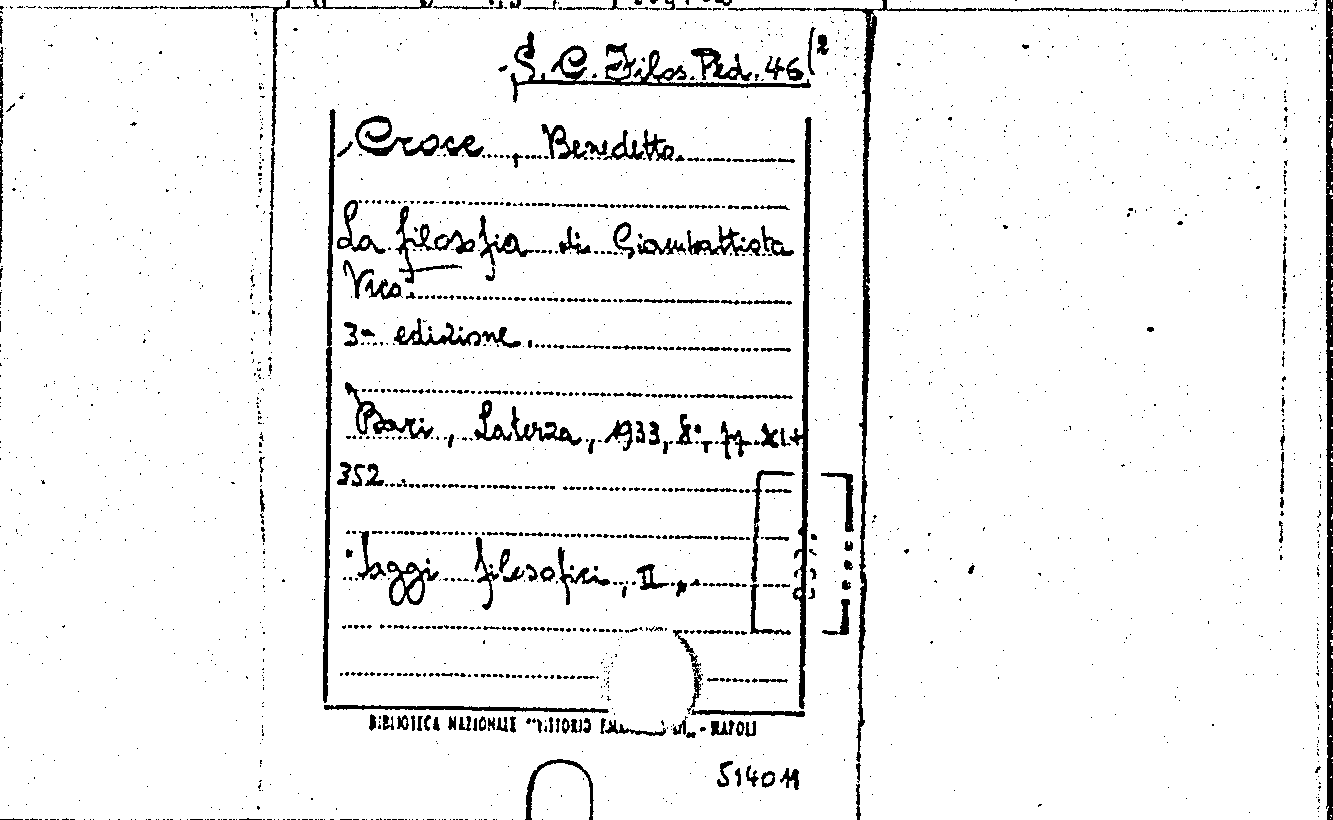 S. C. Filos. Ped. 46(2
Croce, Benedetto.
La filosofia di Giambattista
Vico.
3ª edizione.
Bari, Laterza, 1933, 8°, pp. XI+
352.
"Saggi filosofici, II„.
BIBLIOTECA NAZIONALE "VITTORIO - NAPOLI
514011